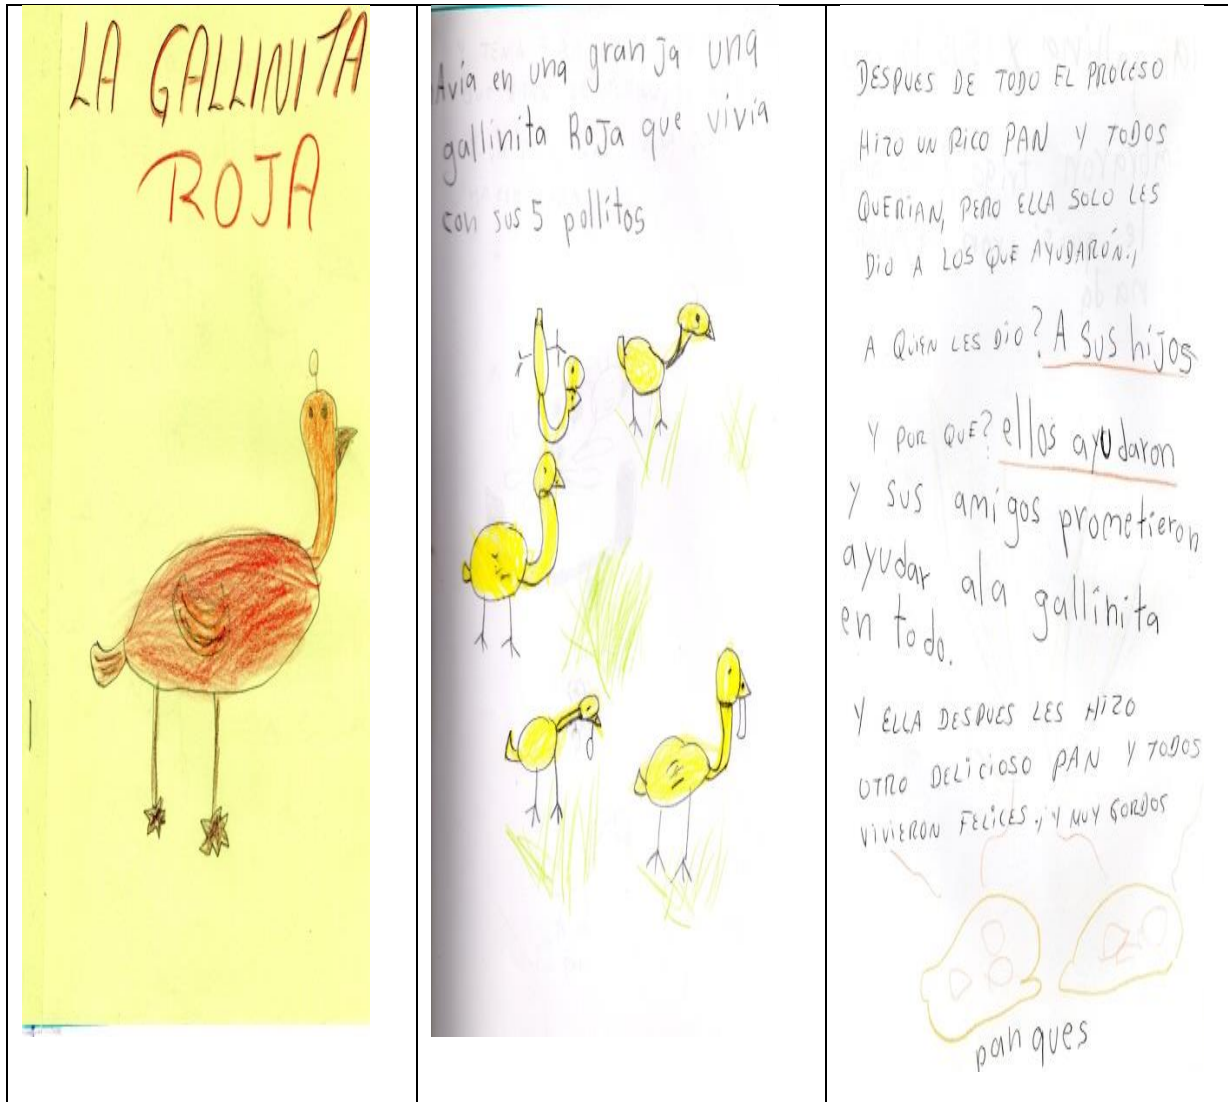 LA GALLINITA
ROJA
Avía en una granja una
gallinita Roja que vivia
con sus 5 pollitos
DESPUES DE TODO EL PROCESO
HIZO UN RICO PAN Y TODOS
QUERIAN, PERO ELLA SOLO LES
DIO A LOS QUE AYUDARÓN.,
A QUIEN LES DIO? A Sus hijos
Y POR QUE? ellos ayudaron
y sus amigos prometieron
ayudar ala gallinita
en todo.
Y ELLA DESPUES LES HIZO
OTRO DELICIOSO PAN Y TODOS
VIVIERON FELICES., Y MUY GORDOS
panques